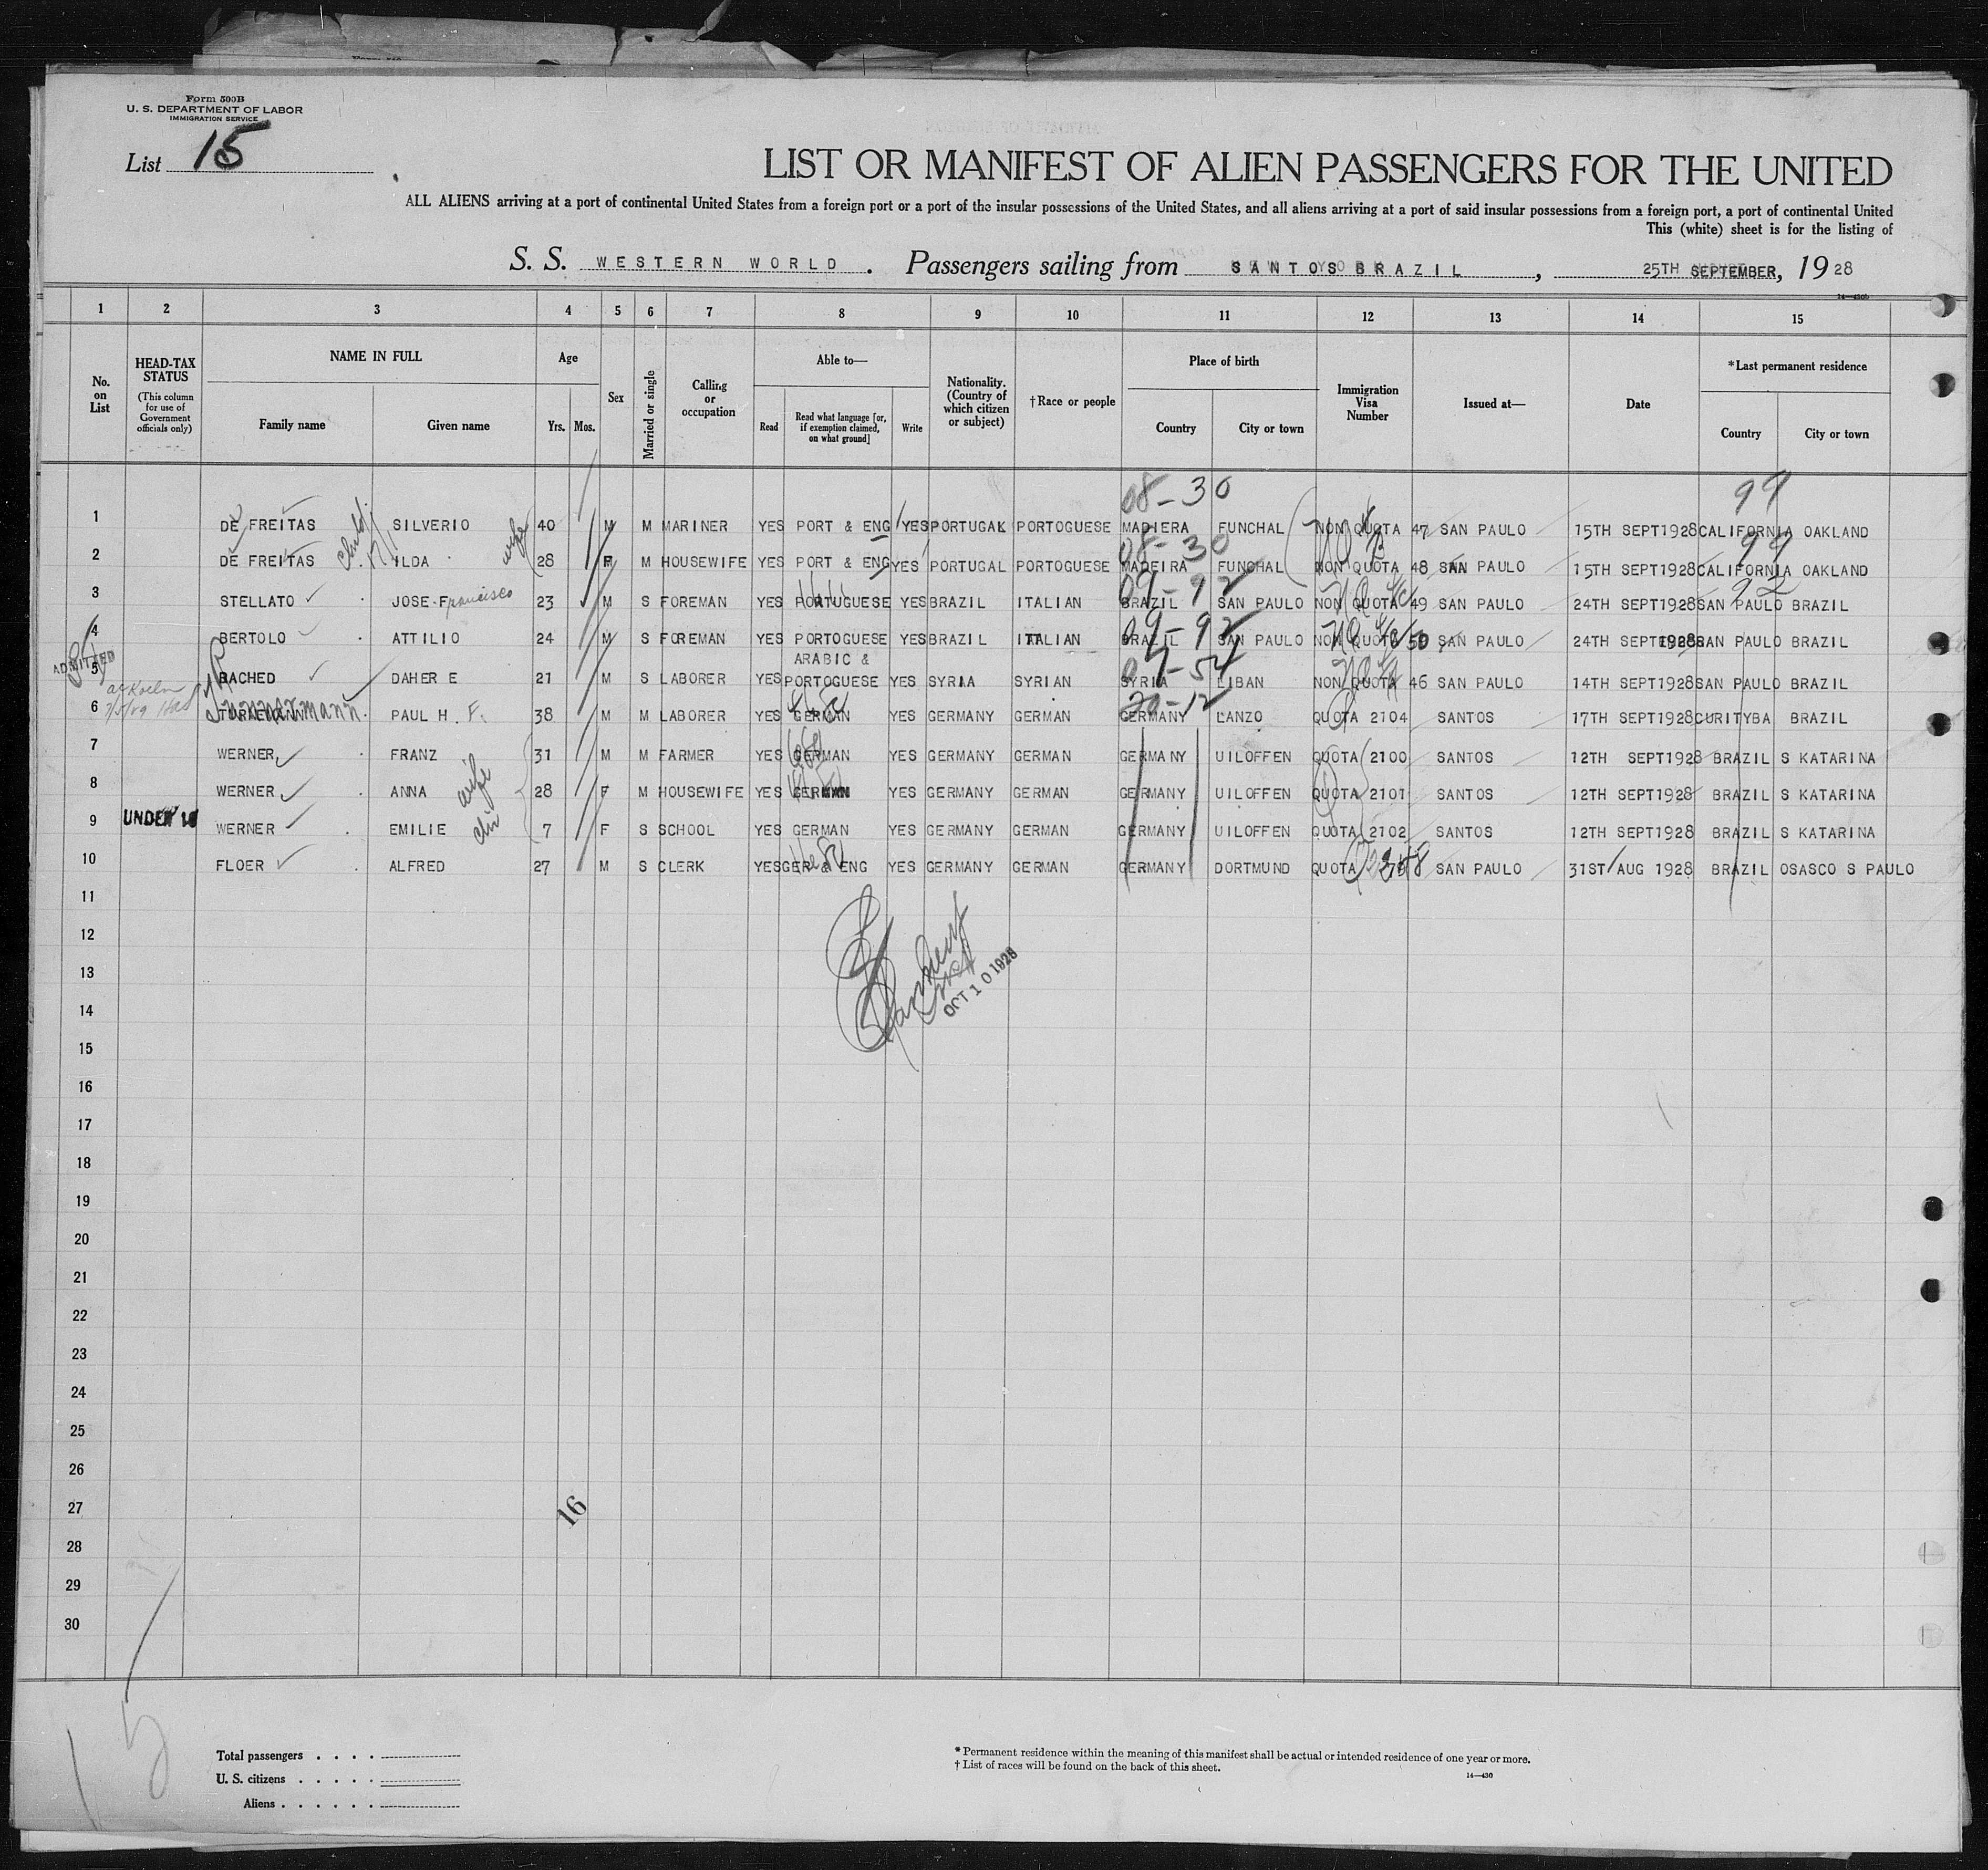 Form 500B
U. S. DEPARTMENT OF LABOR
IMMIGRATION SERVICE
List 15
LIST OR MANIFEST OF ALIEN PASSENGERS FOR THE UNITED
ALL ALIENS arriving at a port of continental United States from a foreign port or a port of the insular possessions of the United States, and all aliens arriving at a port of said insular possessions from a foreign port, a port of continental United
This (white) sheet is for the listing of
S. S. WESTERN WORLD . Passengers sailing from SANTOS BRAZIL , 25TH SEPTEMBER, 19 28
1 2 3 4 5 6 7 8 9 10 11 12 13 14 15
No. on List
HEAD-TAX STATUS
(This column for use of Government officials only)
NAME IN FULL
Family name Given name
Age
Yrs. Mos.
Sex
Married or single
Calling or occupation
Able to—
Read
Read what language [or, if exemption claimed, on what ground]
Write
Nationality. (Country of which citizen or subject)
†Race or people
Place of birth
Country City or town
Immigration Visa Number
Issued at—
Date
*Last permanent residence
Country City or town
08-30 99
1 DE FREITAS SILVERIO 40 M M MARINER YES PORT & ENG YES PORTUGAL PORTOGUESE MADIERA FUNCHAL NON QUOTA 47 SAN PAULO 15TH SEPT1928 CALIFORNIA OAKLAND
wife 08-30 99
2 DE FREITAS ILDA 28 F M HOUSEWIFE YES PORT & ENG YES PORTUGAL PORTOGUESE MADEIRA FUNCHAL NON QUOTA 48 SAN PAULO 15TH SEPT1928 CALIFORNIA OAKLAND
09-92 92
3 STELLATO JOSE Francisco 23 M S FOREMAN YES PORTUGUESE YES BRAZIL ITALIAN BRAZIL SAN PAULO NON QUOTA 49 SAN PAULO 24TH SEPT1928 SAN PAULO BRAZIL
09-92
4 BERTOLO ATTILIO 24 M S FOREMAN YES PORTOGUESE YES BRAZIL ITALIAN BRAZIL SAN PAULO NON QUOTA 50 SAN PAULO 24TH SEPT1928 SAN PAULO BRAZIL
ADMITTED
5 RACHED DAHER E 21 M S LABORER YES ARABIC & PORTOGUESE YES SYRIA SYRIAN SYRIA LIBAN NON QUOTA 46 SAN PAULO 14TH SEPT1928 SAN PAULO BRAZIL
20-12
6 PAUL H. F. 38 M M LABORER YES GERMAN YES GERMANY GERMAN GERMANY LANZO QUOTA 2104 SANTOS 17TH SEPT1928 CURITYBA BRAZIL
7 WERNER FRANZ 31 M M FARMER YES GERMAN YES GERMANY GERMAN GERMANY UILOFFEN QUOTA 2100 SANTOS 12TH SEPT1928 BRAZIL S KATARINA
8 WERNER ANNA wife 28 F M HOUSEWIFE YES GERMAN YES GERMANY GERMAN GERMANY UILOFFEN QUOTA 2101 SANTOS 12TH SEPT1928 BRAZIL S KATARINA
9 UNDER 16 WERNER EMILIE 7 F S SCHOOL YES GERMAN YES GERMANY GERMAN GERMANY UILOFFEN QUOTA 2102 SANTOS 12TH SEPT1928 BRAZIL S KATARINA
10 FLOER ALFRED 27 M S CLERK YES GER & ENG YES GERMANY GERMAN GERMANY DORTMUND QUOTA SAN PAULO 31ST AUG 1928 BRAZIL OSASCO S PAULO
11
12
13
OCT 10 1928
14
15
16
17
18
19
20
21
22
23
24
25
26
27
16
28
29
30
15
Total passengers . . . .
U. S. citizens . . . . .
Aliens . . . . . .
* Permanent residence within the meaning of this manifest shall be actual or intended residence of one year or more.
† List of races will be found on the back of this sheet.
14—430